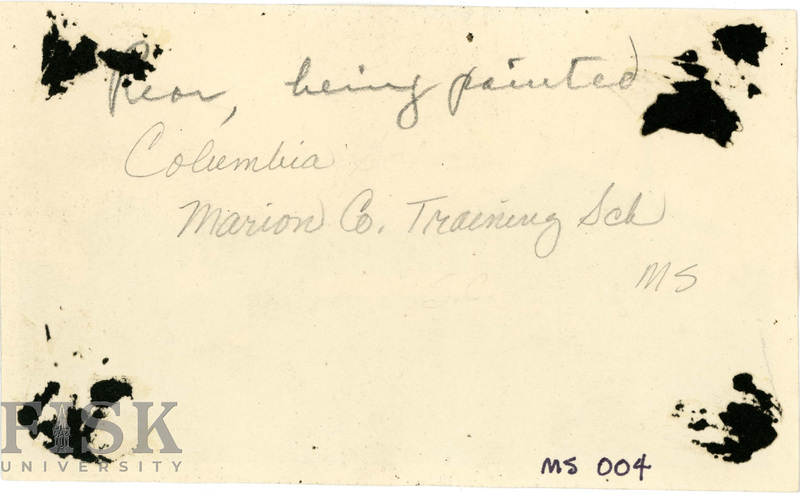 Rear, being painted
Columbia
Marion Co. Training Sch
MS
FISK
UNIVERSITY
MS 004